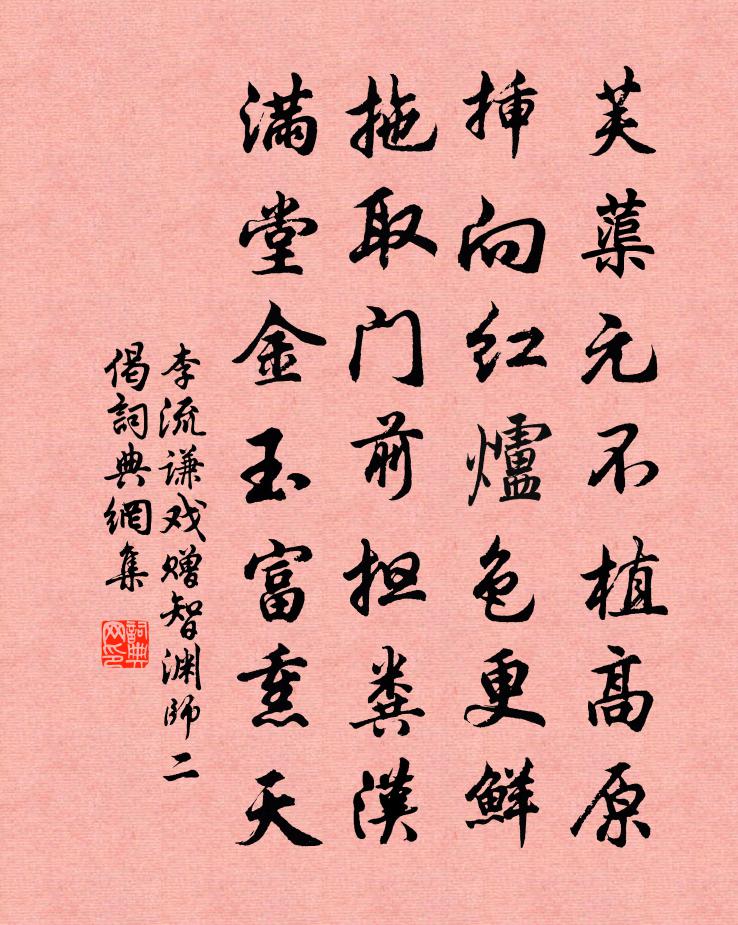 芙蕖元不植高原
揷向红爐色更鮮
拖取门前担粪漢
满堂金玉富熏天
李流谦戏赠智渊師二
偈詞典網集
詞典网印